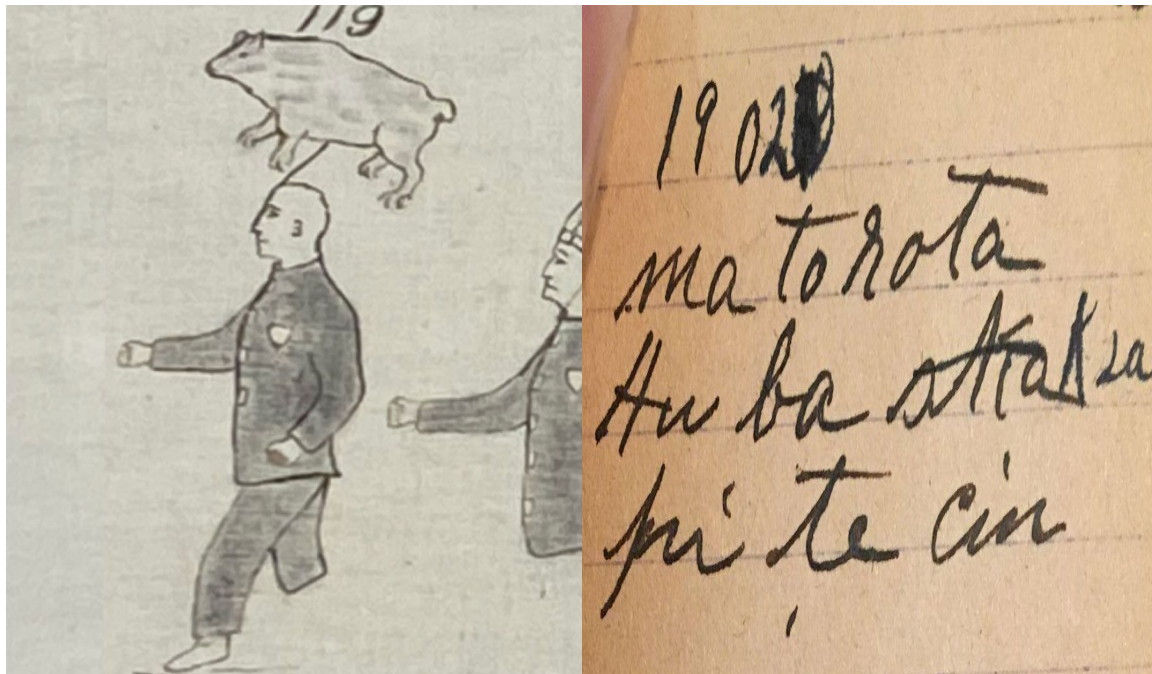 119
1902
ma to rota
Hu ba
pi te cin